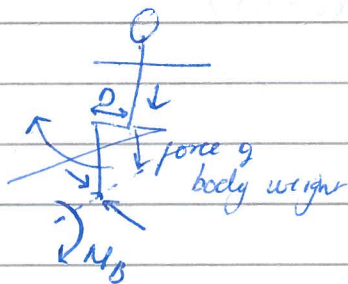 D
force of
body weight
M_B